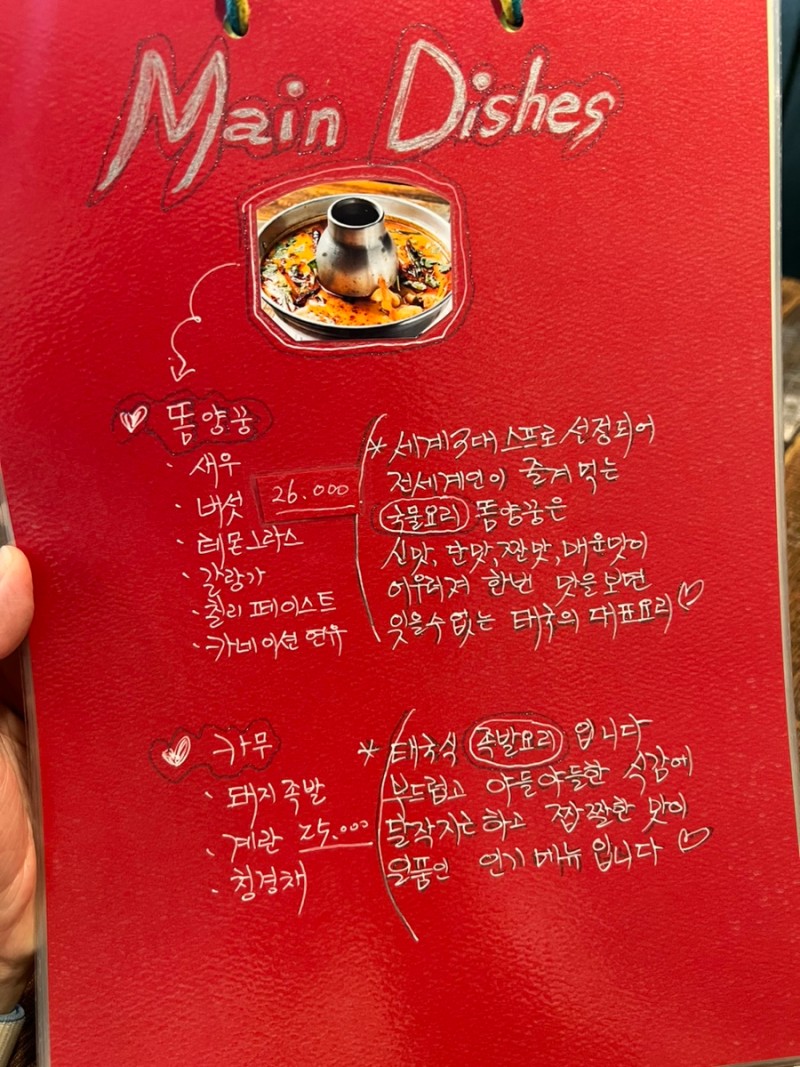 Main Dishes
똠양꿍
· 새우
· 버섯
· 레몬그라스
· 갈랑가
· 칠리 페이스트
· 카네이션 연유
26.000
* 세계3대 스프로 선정되어
전세계인이 즐겨 먹는
국물요리 똠양꿍은
신맛, 단맛, 짠맛, 매운맛이
어우러져 한번 맛을보면
잊을수 없는 태국의 대표요리♡
카무
· 돼지족발
· 계란
· 청경채
25.000
* 태국식 족발요리 입니다
부드럽고 야들야들한 식감에
달작지근하고 짭짤한 맛이
일품인 인기 메뉴 입니다♡